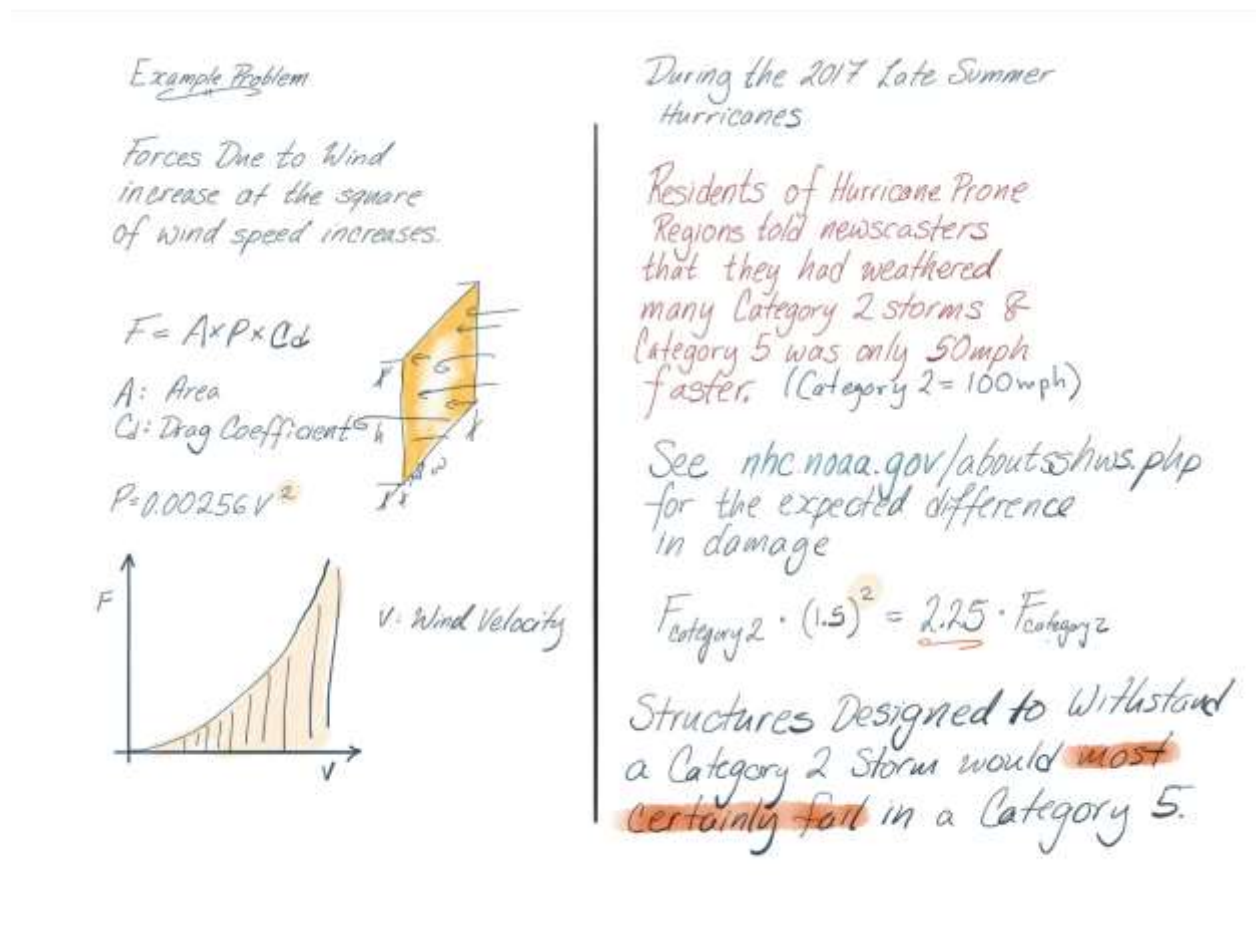 Example Problem
Forces Due to Wind
increase at the square
of wind speed increases.
F = A×P×Cd
A: Area
Cd: Drag Coefficient
P=0.00256V²
h
w
F
V
V: Wind Velocity
During the 2017 Late Summer
Hurricanes
Residents of Hurricane Prone
Regions told newscasters
that they had weathered
many Category 2 storms &
Category 5 was only 50mph
faster. (Category 2 = 100mph)
See nhc.noaa.gov/aboutsshws.php
for the expected difference
in damage
Fcategory2 · (1.5)² = 2.25 · Fcategory2
Structures Designed to Withstand
a Category 2 Storm would most
certainly fail in a Category 5.